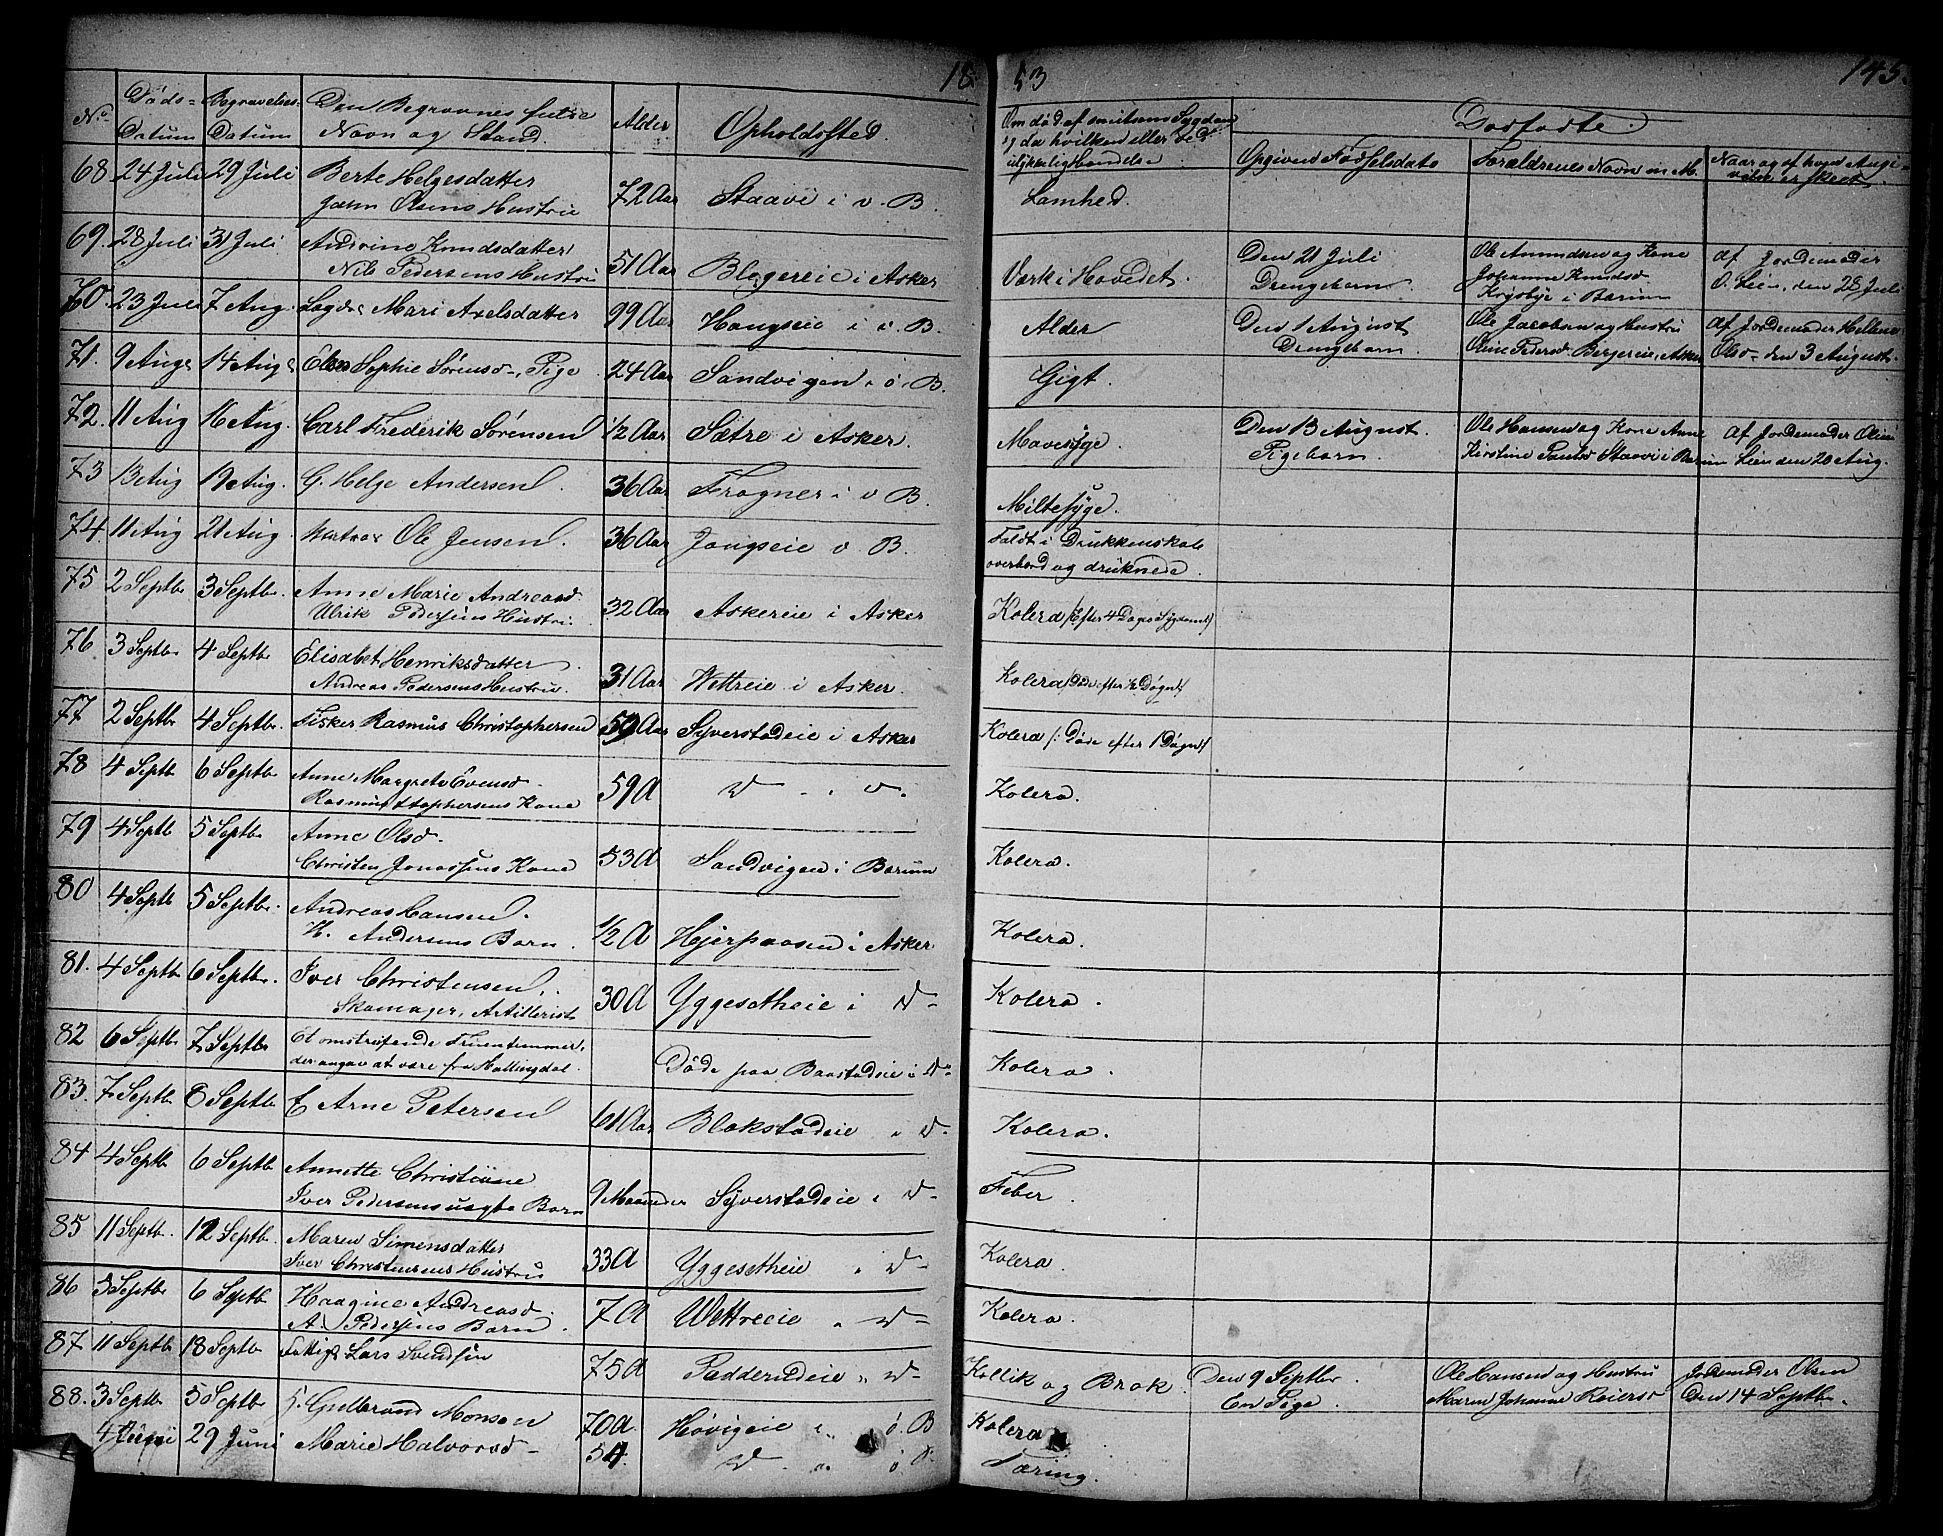 18 53 145.
No Døds-Datum Begravelses-Datum Den Begravnes fulde Navn og Stand. Alder Opholdssted. Om død af smitsom Sygdom og da hvilken eller ved ulykkelig Hændelse Dødfødte.
Opgiven Fødselsdato Forældrenes Navn m M. Naar og af hvem Angivelse er skeet.
68 24 Juli 29 Juli Berte Helgesdatter
John Olsens Hustru 72 Aar Staavi i v. B. Lamhed.
69. 28 Juli 31 Juli Andrine Knudsdatter
Nils Pedersens Hustru 51 Aar Blegereie i Asker Værk i Hovedet. Den 21 Juli Drengebarn Ole Amundsen og Kone Johanne Knudsd Krysbye i Bærum af Jordemoder O. Lien, den 28 Juli
70. 23 Juli 7 Aug. Logds Mari Axelsdatter 99 Aar Haugseie i v. B. Alder Den 1 August Drengebarn. Ole Jacobsen og Hustru Oline Pedersd Bergereie, Asker af Jordemoder Hellene Olsd. den 3 August.
71. 9 Aug 14 Aug Elen Sophie Sørensd-, Pige 24 Aar Sandvigen i ø. B. Gigt.
72. 11 Aug 16 Aug. Carl Frederik Sørensen 1/2 Aar Sætre i Asker. Mavesyge. Den 13 August. Pigebarn. Ole Hansen og Kone Anne Kirstine Paulsd Staavi i Bærum af Jordemoder Oline Lien den 20 Aug.
73 13 Aug 19 Aug. G. Helge Andersen 36 Aar Frogner i v B. Miltesyge.
74. 11 Aug 21 Aug. Matros Ole Jensen. 36 Aar Jongseie v. B. Faldt i Drukkenskab
overbord og druknede.
75 2 Septbr 3 Septbr. Anne Marie Andreasd.
Ulrik Pedersens Hustru. 32 Aar Askereie i Asker Kolera /: Efter 4 Dages Sygdom :/
76 3 Septbr 4 Septbr Elisabet Henriksdatter
Andreas Pedersens Hustru. 31 Aar Wettreie i Asker. Kolera /: Døde efter 1/2 Døgn :/
77 2 Septbr 4 Septbr. Fisker Rasmus Christophersen 59 Aar Syverstadeie i Asker Kolera /: Døde efter 1 Døgn :/
78 4 Septb 6 Septbr Anne Margrete Evensd-
Rasmus Xstophersens Kone 59 A D - i D. Kolera.
79 4 Septb 5 Septb. Anne Olsd.
Christen Jonassens Kone 53 A Sandvigen i Bærum Kolera.
80 4 Septb 5 Septbr. Andreas Hansen.
H. Andersens Barn. 1/2 A Hjerpaasen i Asker Kolera.
81. 4 Septbr 6 Septbr. Iver Christensen.
Skomager, Artillerist 30 A Yggesetheie i D- Kolera.
82 6 Septbr 7 Septbr Et omstrifende Fruentimmer,
der angav at være fra Hallingdal. Døde paa Baastadeie i D- Kolera.
83. 7 Septbr 8 Septbr E Arne Petersen 61 Aar Blakstadeie i D- Kolera.
84 4 Septbr 6 Septbr Annette Christiane
Iver Pedersens uægte Barn 9 Maaneder Syverstadeie i D- Feber.
85 11 Septbr. 12 Septbr. Maren Simensdatter
Iver Christensens Hustru 33 A Yggesetheie i D- Kolera.
86 5 Septbr 6 Septbr. Haagine Andreasd.
A. Pedersens Barn. 7 A Wettreeie i D- Kolera.
87 11 Septbr 18 Septbr Fattig Lars Svendsen 75 A Padderudeie i D- Kollik og Brok. Den 9 Septbr. En Pige. Ole Hansen og Hustru Maren Johanne Reiersd Jordemoder Olsen Den 14 Septbr.
88. 3 Septbr 5 Septbr G. Gulbrand Monsen 70 A Høvigeie i ø. B Kolera
29 Juni Marie Halvorsd- 54. D - ø. B. Tæring.